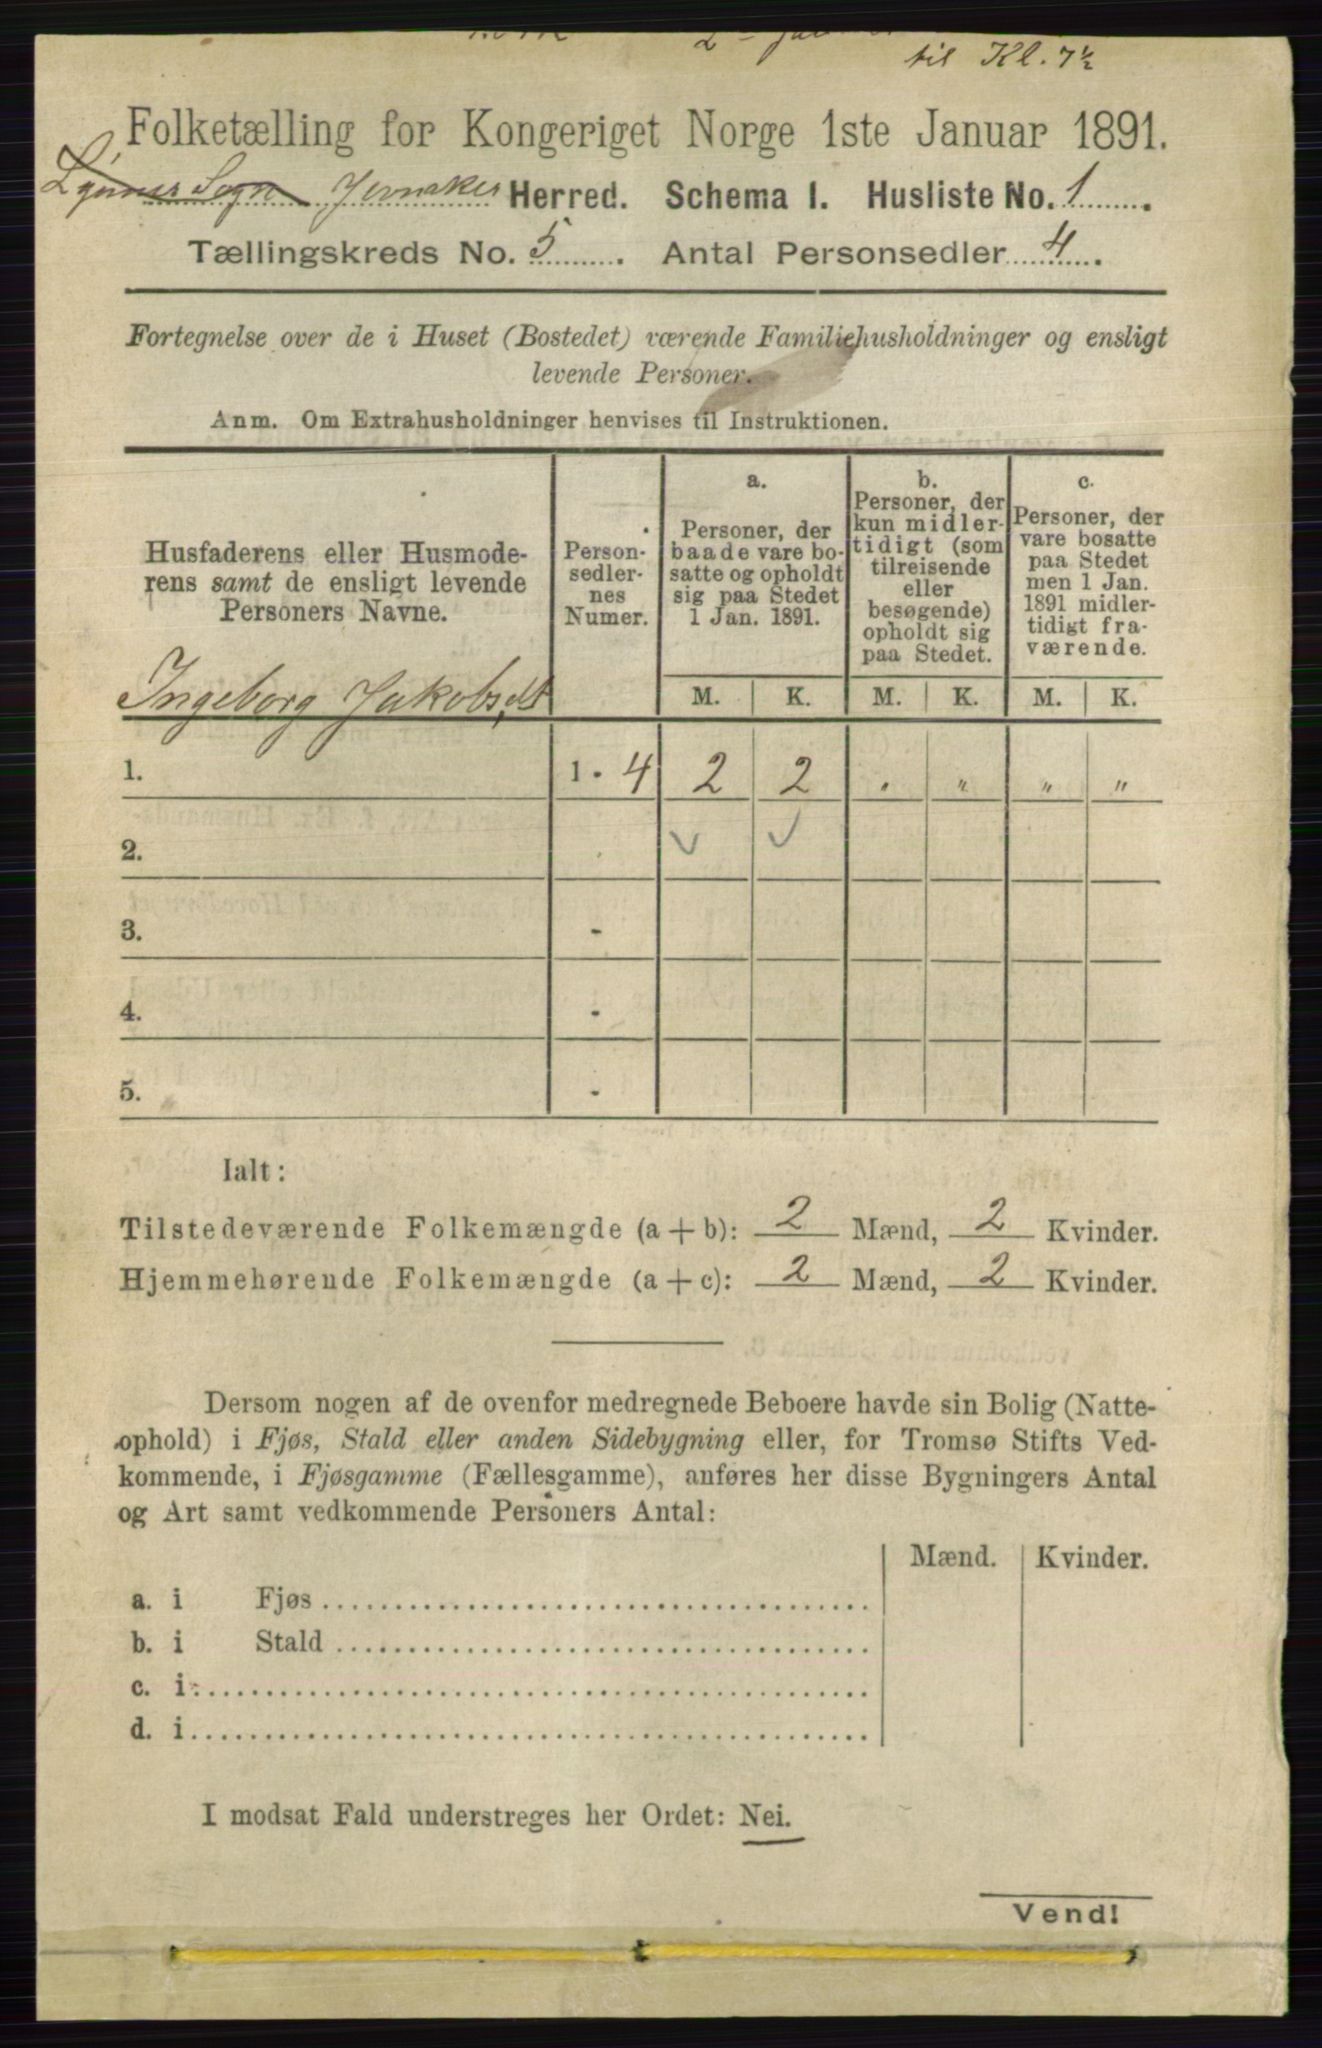 til Kl. 7½
Folketælling for Kongeriget Norge 1ste Januar 1891.
Sogn Jevnaker Herred. Schema I. Husliste No. 1
Tællingskreds No. 5. Antal Personsedler 4.
Fortegnelse over de i Huset (Bostedet) værende Familiehusholdninger og ensligt
levende Personer.
Anm. Om Extrahusholdninger henvises til Instruktionen.
Husfaderens eller Husmode-
rens samt de ensligt levende
Personers Navne.
Person-
sedler-
nes
Numer.
a.
Personer, der
baade vare bo-
satte og opholdt
sig paa Stedet
1 Jan. 1891.
b.
Personer, der
kun midler-
tidigt (som
tilreisende
eller
besøgende)
opholdt sig
paa Stedet.
c.
Personer, der
vare bosatte
paa Stedet
men 1 Jan.
1891 midler-
tidigt fra-
værende.
M. K. M. K. M. K.
Ingeborg Jakobsdt
1. 1 - 4 2 2 " " " "
2.
3. -
4. -
5. -
Ialt:
Tilstedeværende Folkemængde (a + b): 2 Mænd, 2 Kvinder.
Hjemmehørende Folkemængde (a + c): 2 Mænd, 2 Kvinder.
Dersom nogen af de ovenfor medregnede Beboere havde sin Bolig (Natte-
ophold) i Fjøs, Stald eller anden Sidebygning eller, for Tromsø Stifts Ved-
kommende, i Fjøsgamme (Fællesgamme), anføres her disse Bygningers Antal
og Art samt vedkommende Personers Antal:
Mænd. Kvinder.
a. i Fjøs
b. i Stald
c. i
d. i
I modsat Fald understreges her Ordet: Nei.
Vend!